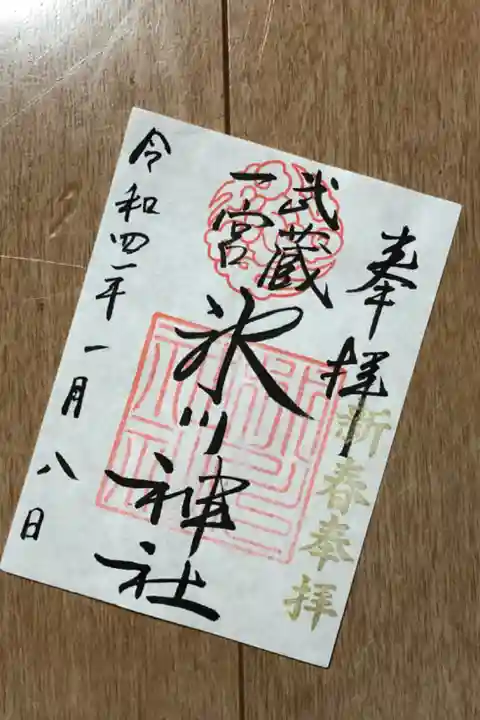 奉拝
新春奉拝
武蔵
一宮
氷川神社
令和四年一月八日